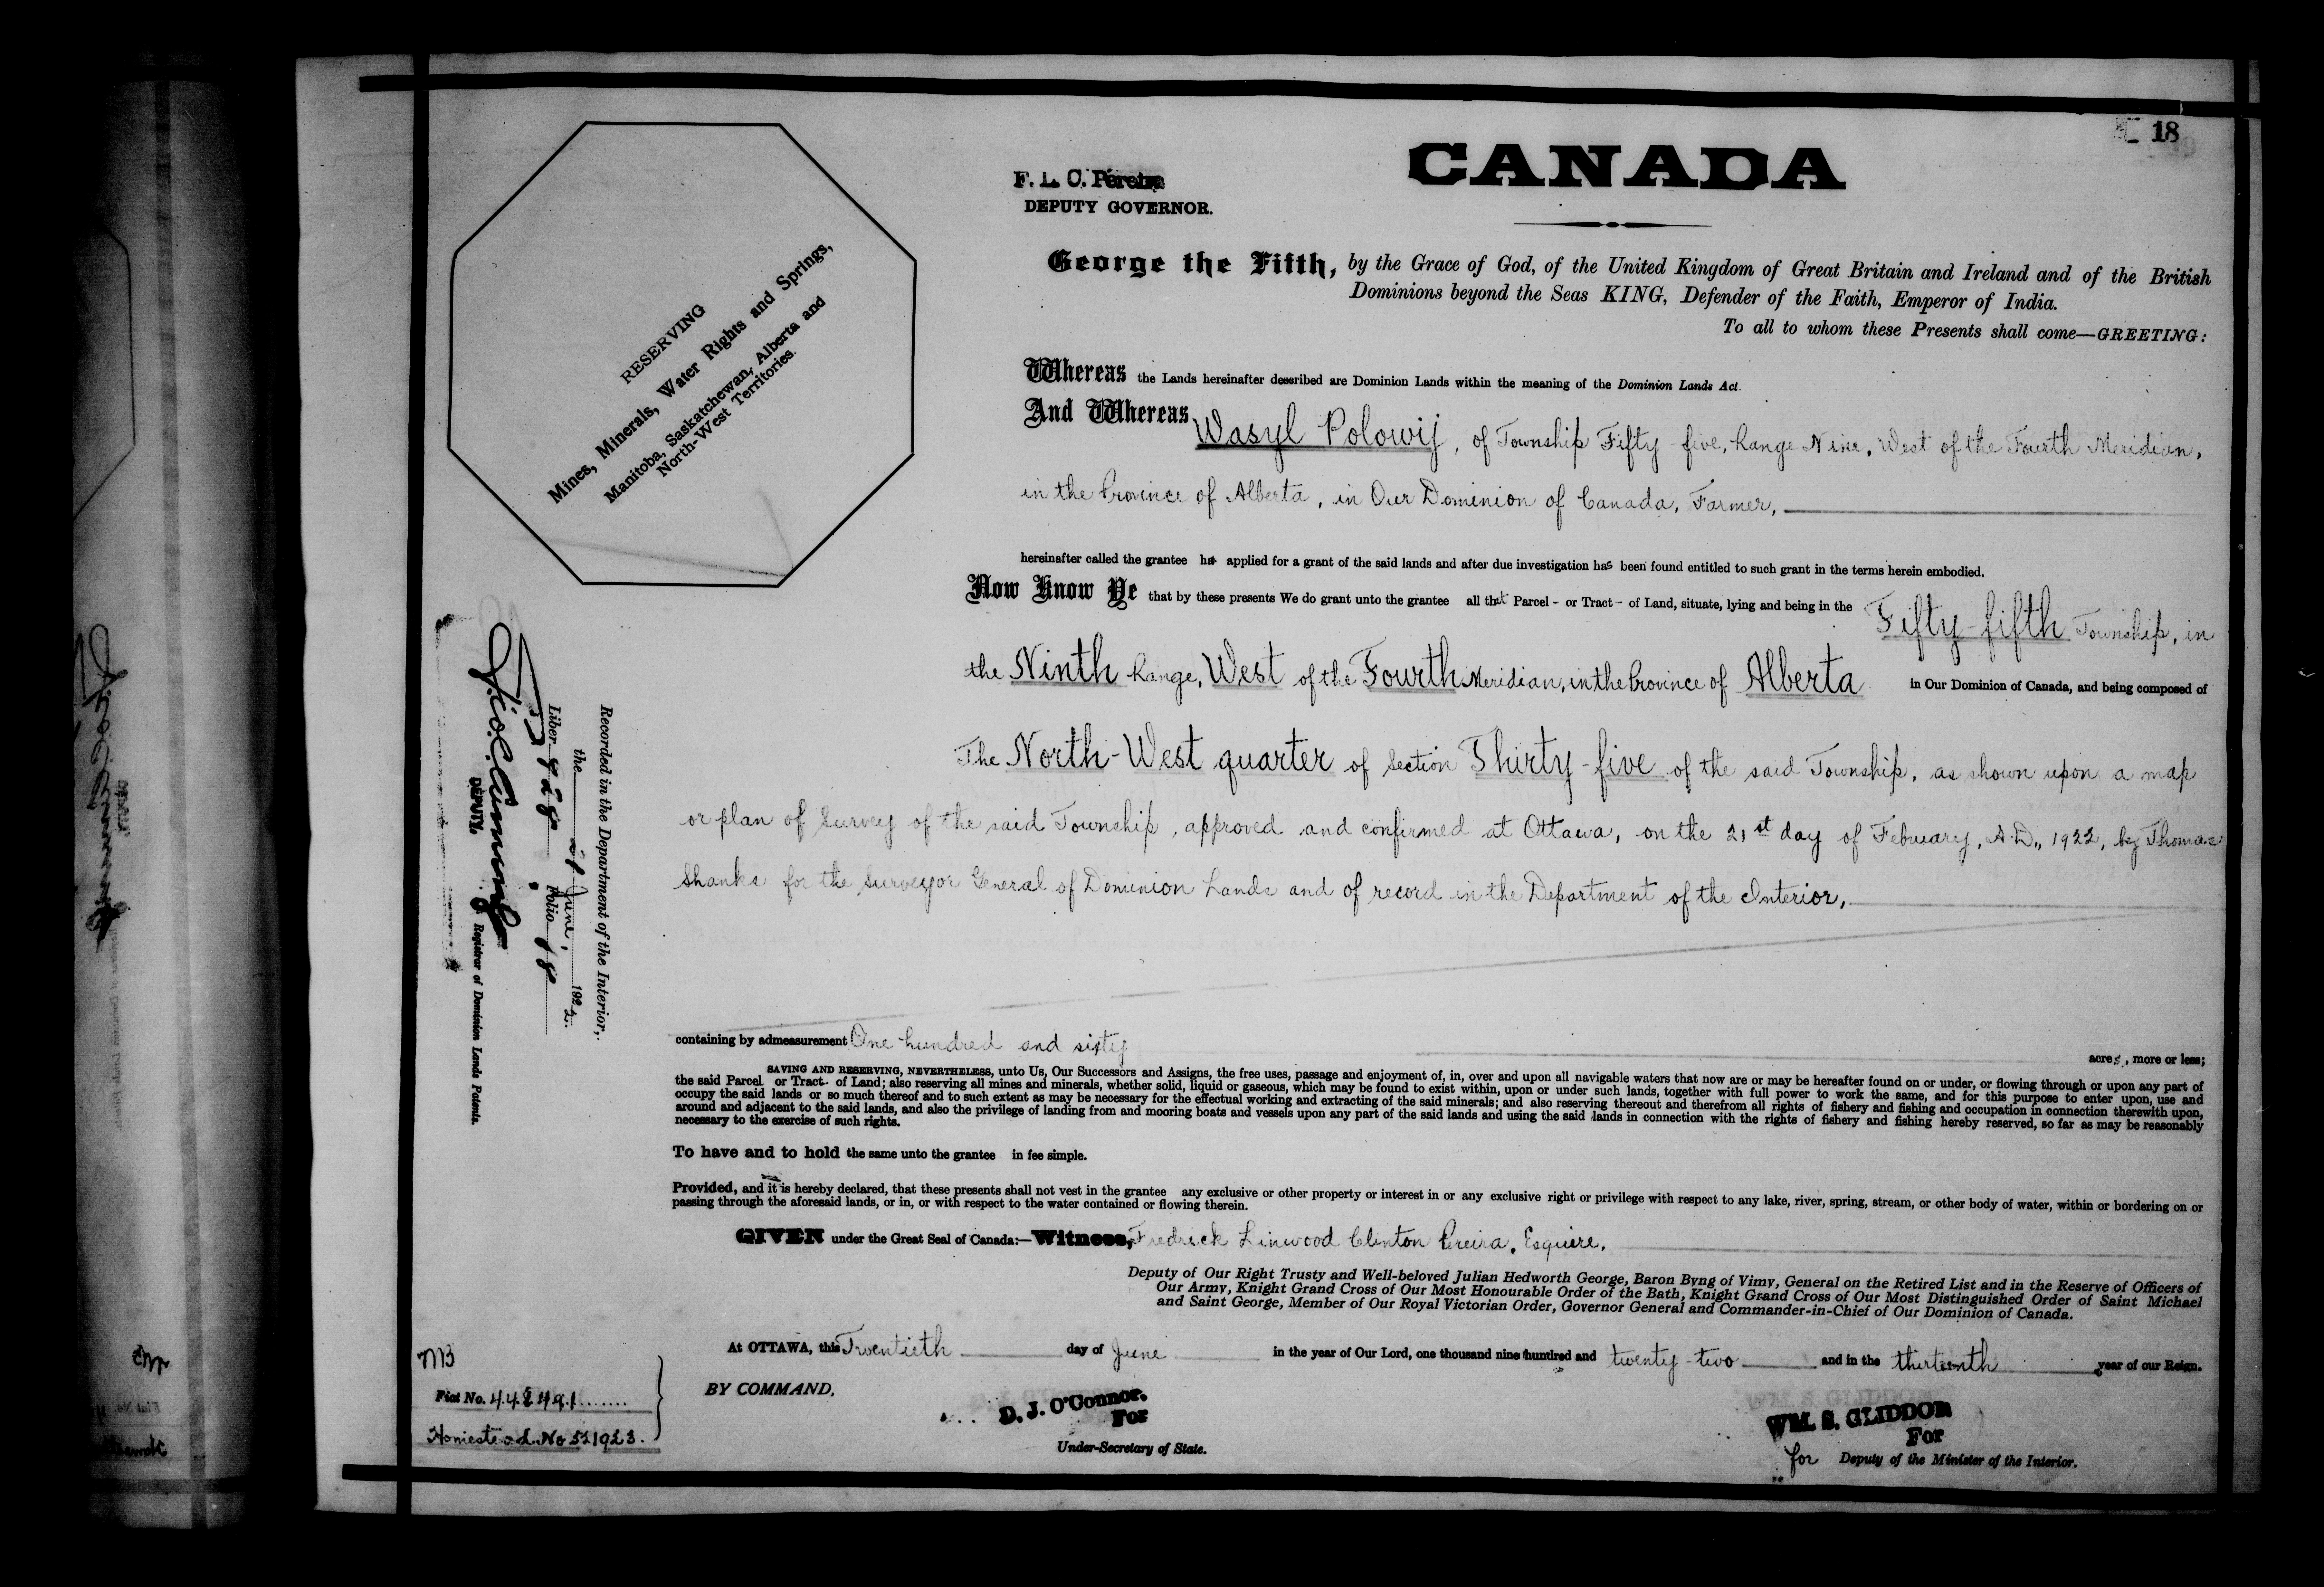 18
CANADA
F. L. C. Pereira
DEPUTY GOVERNOR.
RESERVING
Mines, Minerals, Water Rights and Springs,
Manitoba, Saskatchewan, Alberta and
North-West Territories.
George the Fifth, by the Grace of God, of the United Kingdom of Great Britain and Ireland and of the British
Dominions beyond the Seas KING, Defender of the Faith, Emperor of India.
To all to whom these Presents shall come—GREETING:
Whereas the Lands hereinafter described are Dominion Lands within the meaning of the Dominion Lands Act.
And Whereas Wasyl Polowij, of Township Fifty-five, Range Nine, West of the Fourth Meridian,
in the Province of Alberta, in Our Dominion of Canada, Farmer,
hereinafter called the grantee has applied for a grant of the said lands and after due investigation has been found entitled to such grant in the terms herein embodied.
Now Know Ye that by these presents We do grant unto the grantee all that Parcel - or Tract - of Land, situate, lying and being in the Fifty-fifth Township, in
the Ninth Range, West of the Fourth Meridian, in the Province of Alberta in Our Dominion of Canada, and being composed of
The North-West quarter of Section Thirty-five of the said Township, as shown upon a map
or plan of Survey of the said Township, approved and confirmed at Ottawa, on the 21st day of Febuary, A.D., 1922, by Thomas
Shanks for the Surveyor General of Dominion Lands and of record in the Department of the Interior,
containing by admeasurement One hundred and sixty acres, more or less;
SAVING AND RESERVING, NEVERTHELESS, unto Us, Our Successors and Assigns, the free uses, passage and enjoyment of, in, over and upon all navigable waters that now are or may be hereafter found on or under, or flowing through or upon any part of
the said Parcel or Tract of Land; also reserving all mines and minerals, whether solid, liquid or gaseous, which may be found to exist within, upon or under such lands, together with full power to work the same, and for this purpose to enter upon, use and
occupy the said lands or so much thereof and to such extent as may be necessary for the effectual working and extracting of the said minerals; and also reserving thereout and therefrom all rights of fishery and fishing and occupation in connection therewith upon,
around and adjacent to the said lands, and also the privilege of landing from and mooring boats and vessels upon any part of the said lands and using the said lands in connection with the rights of fishery and fishing hereby reserved, so far as may be reasonably
necessary to the exercise of such rights.
To have and to hold the same unto the grantee in fee simple.
Provided, and it is hereby declared, that these presents shall not vest in the grantee any exclusive or other property or interest in or any exclusive right or privilege with respect to any lake, river, spring, stream, or other body of water, within or bordering on or
passing through the aforesaid lands, or in, or with respect to the water contained or flowing therein.
GIVEN under the Great Seal of Canada:—Witness, Fredrick Linwood Clinton Pereira, Esquire,
Deputy of Our Right Trusty and Well-beloved Julian Hedworth George, Baron Byng of Vimy, General on the Retired List and in the Reserve of Officers of
Our Army, Knight Grand Cross of Our Most Honourable Order of the Bath, Knight Grand Cross of Our Most Distinguished Order of Saint Michael
and Saint George, Member of Our Royal Victorian Order, Governor General and Commander-in-Chief of Our Dominion of Canada.
At OTTAWA, this Twentieth day of June in the year of Our Lord, one thousand nine hundred and twenty-two and in the thirteenth year of our Reign.
BY COMMAND,
D. J. O'Connor.
For
Under-Secretary of State.
WM. S. GLIDDON
For
for Deputy of the Minister of the Interior.
Recorded in the Department of the Interior,
the 28 June, 1922.
Liber 828 Folio 18
DEPUTY. Registrar of Dominion Lands Patents.
MB
Fiat No.
Homestead No 521923.